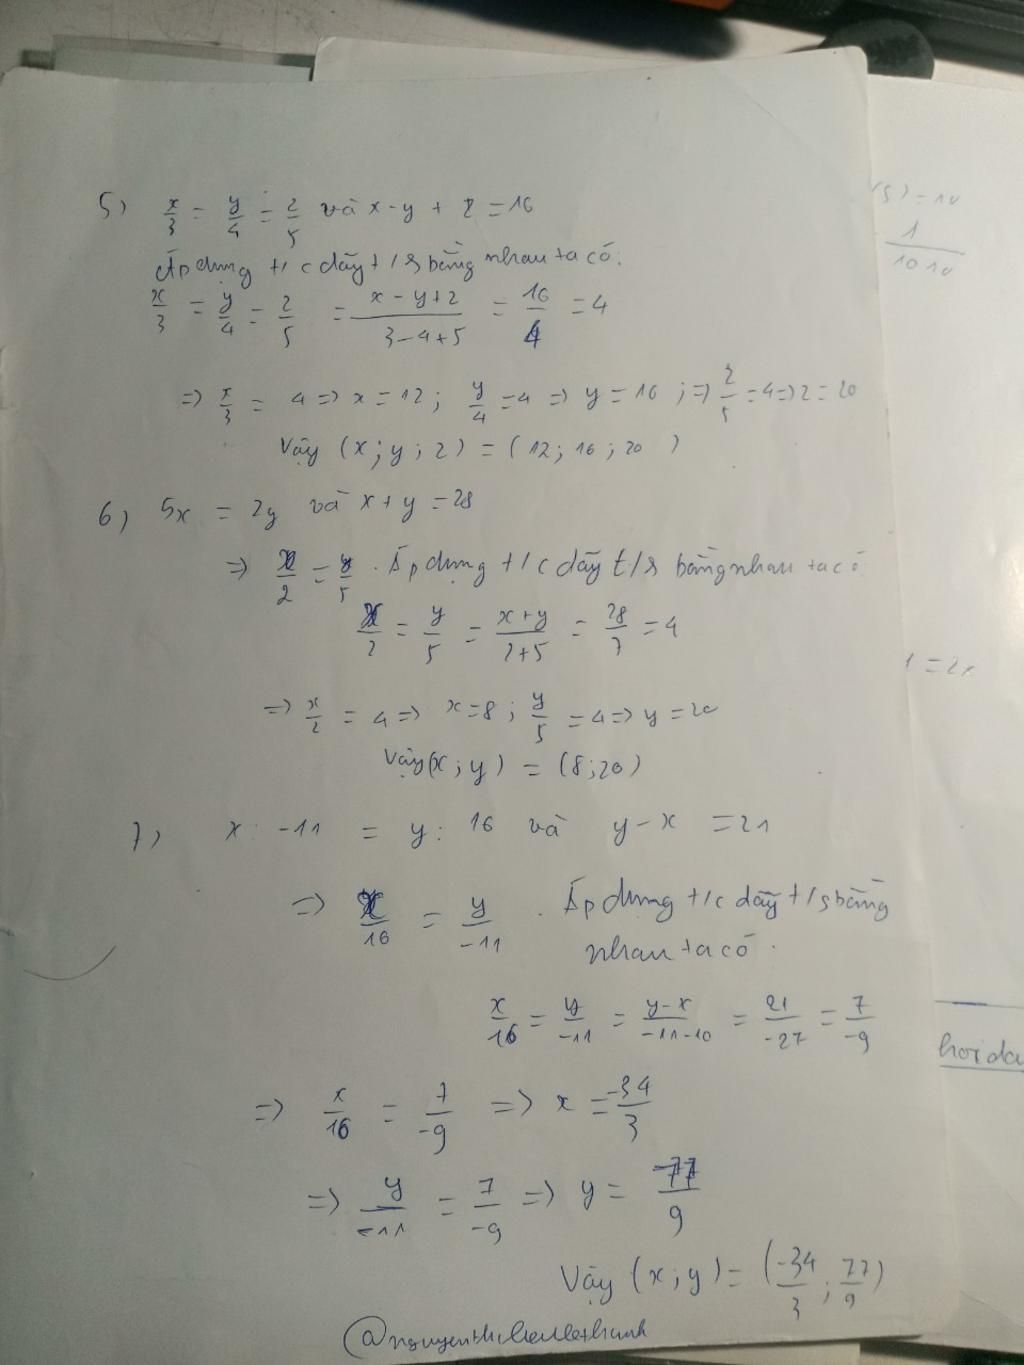 5) x/3 = y/4 = z/5 và x - y + z = 16
Áp dụng t/c dãy t/s bằng nhau ta có:
x/3 = y/4 = z/5 = (x - y + z)/(3 - 4 + 5) = 16/4 = 4
=> x/3 = 4 => x = 12; y/4 = 4 => y = 16; => z/5 = 4 => z = 20
Vậy (x; y; z) = (12; 16; 20)
6) 5x = 2y và x + y = 28
=> x/2 = y/5. Áp dụng t/c dãy t/s bằng nhau ta có
x/2 = y/5 = (x + y)/(2 + 5) = 28/7 = 4
=> x/2 = 4 => x = 8; y/5 = 4 => y = 20
Vậy (x; y) = (8; 20)
7) x : -11 = y : 16 và y - x = 21
=> x/16 = y/-11. Áp dụng t/c dãy t/s bằng
nhau ta có.
x/16 = y/-11 = (y - x)/(-11 - 10) = 21/-27 = 7/-9
=> x/16 = 7/-9 => x = -34/3
=> y/-11 = 7/-9 => y = 77/9
Vậy (x; y) = (-34/3; 77/9)
(5) = 10
1/1010
1 = 2x
hoida